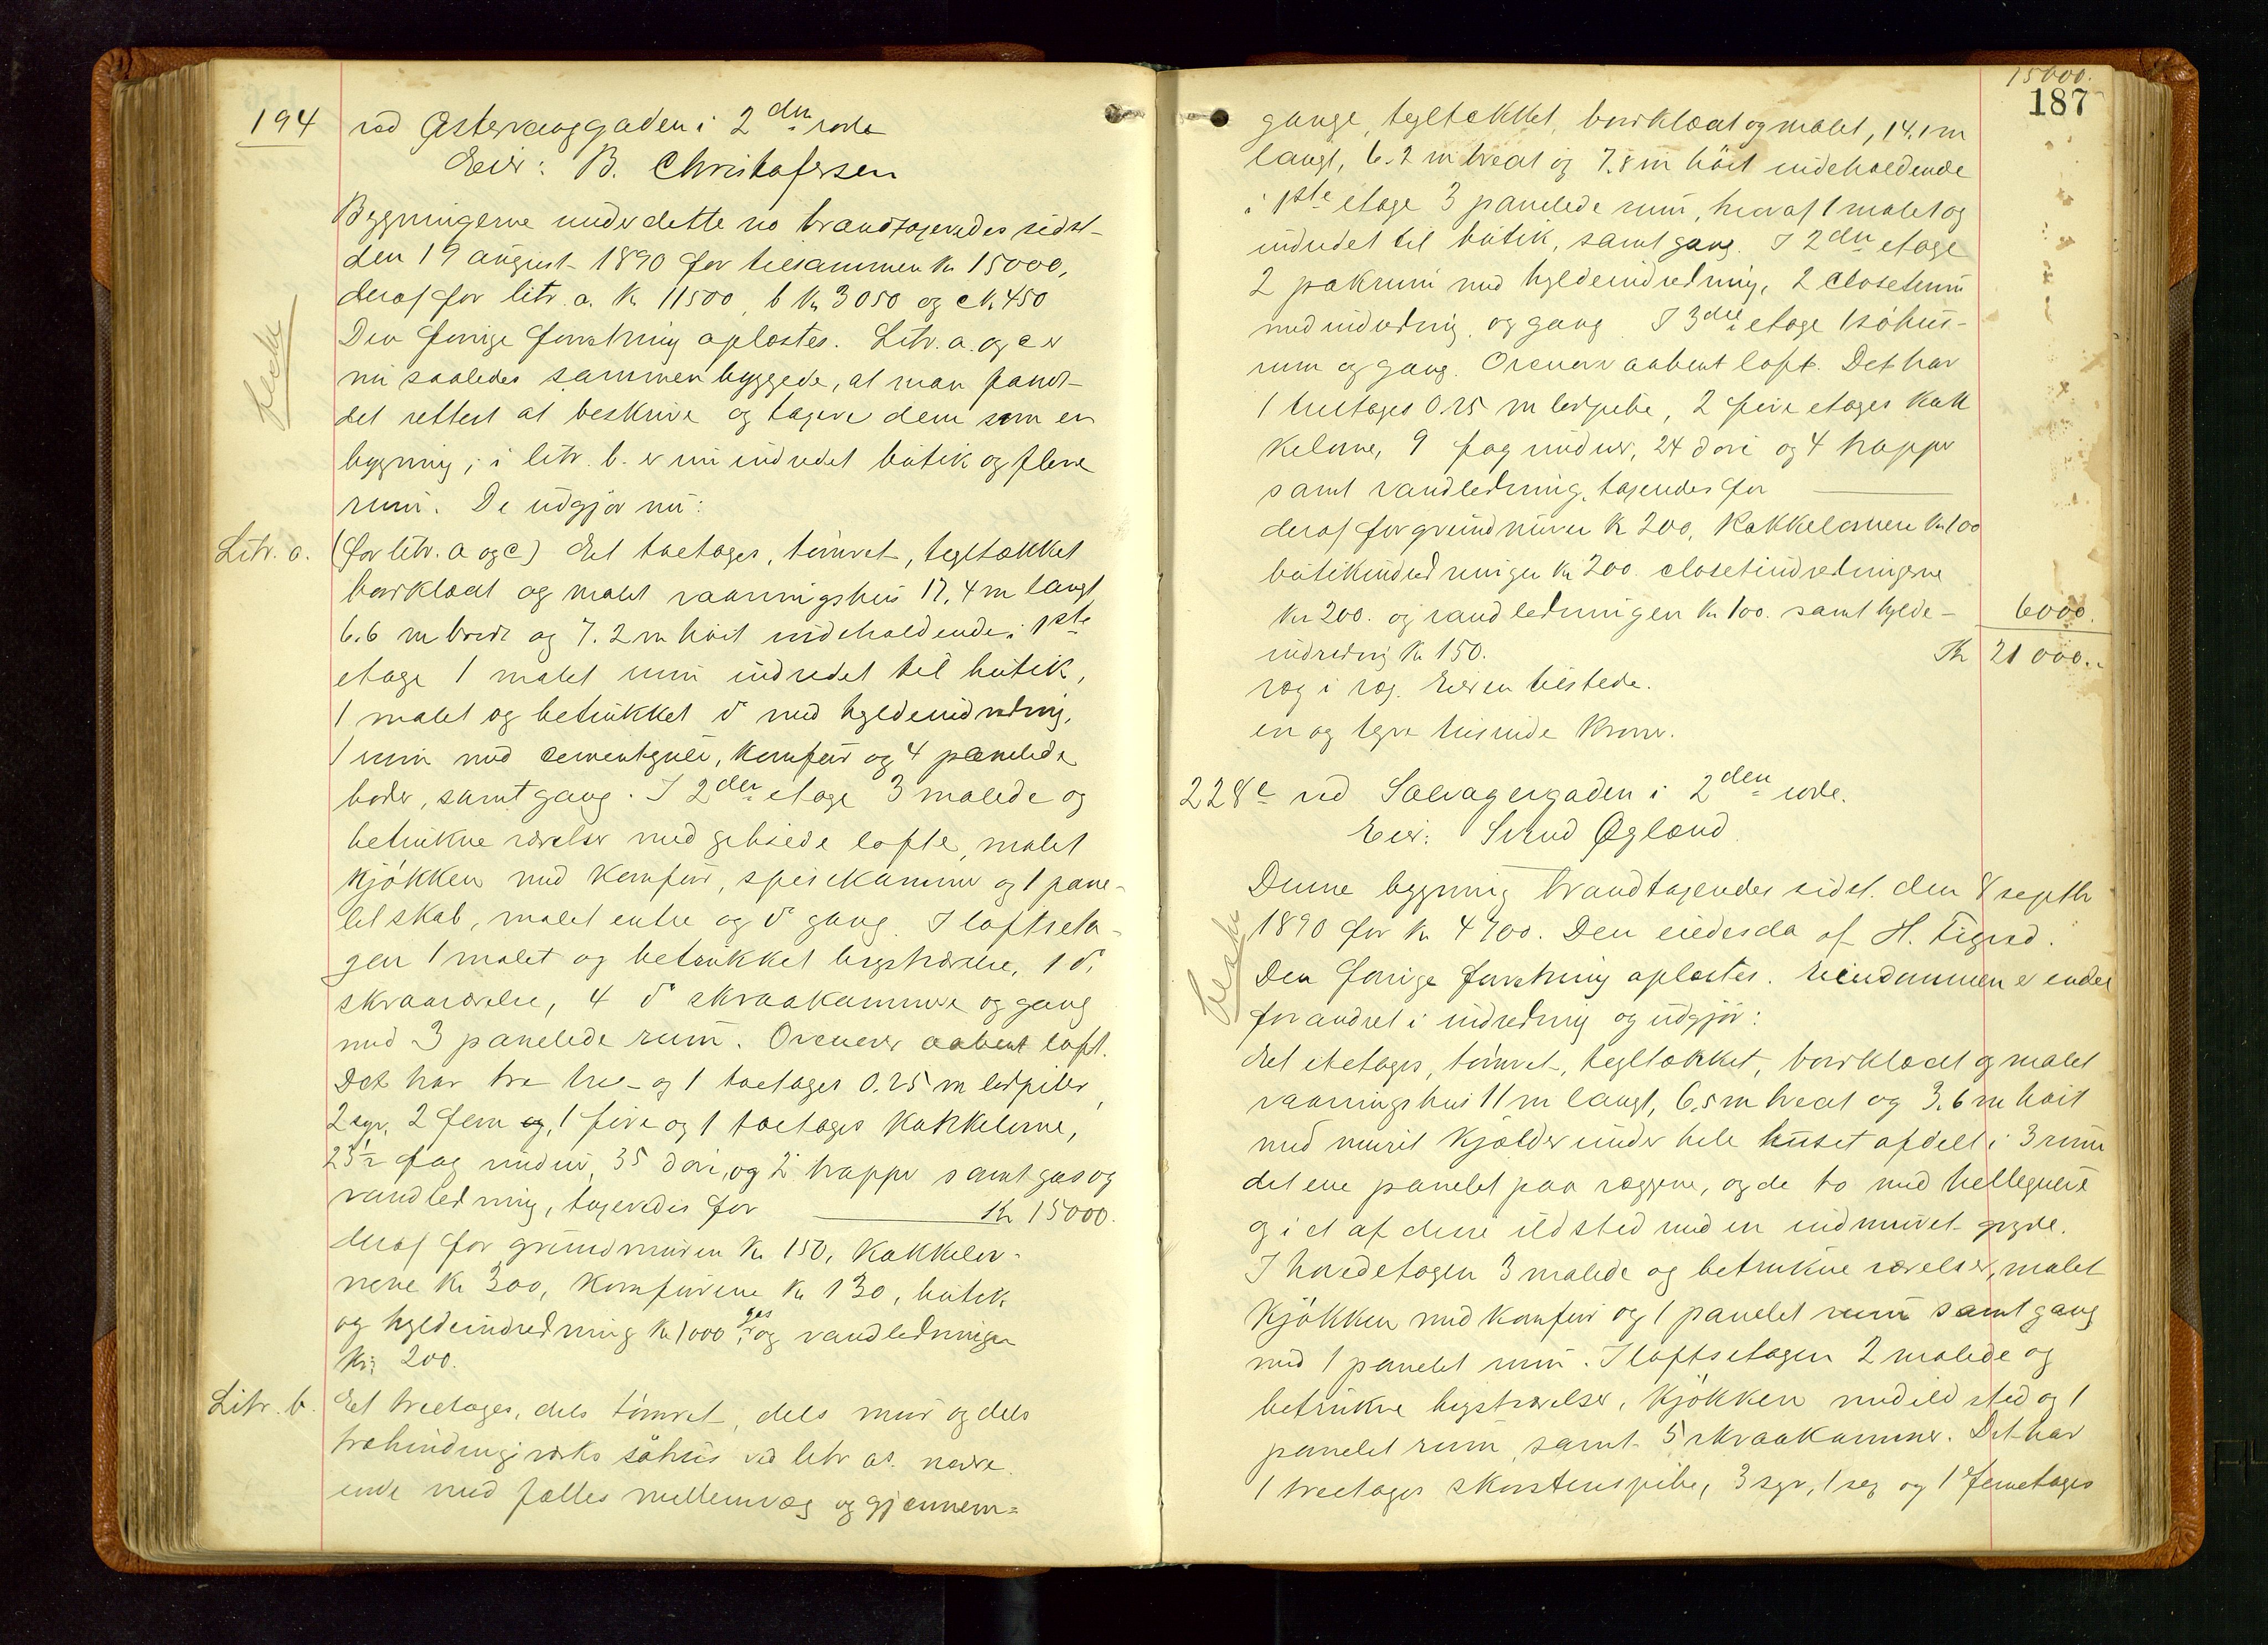 194 ved Østervaaggaden i 2den rode
Eier: B. Christofersen
Bygningerne under dette no brandtaxeredes sidst
den 19 august 1890 for tilsammen Kr 15000,
deraf for litr. a. Kr 11500, b Kr 3050 og c Kr 450
Den forrige forretning oplæstes. Litr. a. og c er
nu saaledes sammenbyggede, at man fandt
det rettest at beskrive og taxere dem som en
bygning; i litr. b. er nu indredet butik og flere
rum. De udgjør nu:
Litr. a. (for litr. a og c) Et toetages, tømret, tegltækket
bordklædt og malet vaaningshus 17,4 m langt
6.6 m bredt og 7.2 m høit indeholdende i 1ste
etage 1 malet rum indredet til butik,
1 malet og betrukket do med hyldeindredning,
1 rum med cementgulv, komfur og 4 panelede
boder, samt gang. I 2den etage 3 malede og
betrukne værelser med gibsede lofte, malet
kjøkken med komfur, spisekammer og 1 pane-
let skab, malet entre og do gang. I loftseta-
gen 1 malet og betrukket kvistværelse, 1 do
skraaværelse, 4 do skraakammere og gang
med 3 panelede rum. Ovenover aabent loft.
Det har tre tre- og 1 toetages 0.25 m ledpiber,
2 sex, 2 fem og, 1 fire og 1 toetages kakkelovne,
23½ fag vinduer, 35 døre, og 2 trapper samt gas og
vandledning, taxeredes for Kr 15000.
deraf for grundmuren Kr 150, kakkelov-
nene Kr 300, komfurene Kr 130, butik
og hyldeindredning Kr 1000, gas og vandledningen
Kr. 200.
Litr. b. Et treetages, dels tømret, dels mur og dels
træbindingsverks søhus ved litr a. være
ende med fælles mellemvæg og gjennem-
15000.
187
gange, tegltækket, bordklædt og malet, 14,1 m
langt, 6.2 m bredt og 7.8 m høit indeholdende
i 1ste etage 3 panelede rum, hvoraf 1 malet og
indredet til butik, samt gang. I 2den etage
2 pakrum med hyldeindredning, 2 closetrum
med indredning og gang. I 3die etage 1 søhus-
rum og gang. Ovenover aabent loft. Det har
1 treetages 0.25 m ledpibe, 2 fire etages kak
kelovne, 9 fag vinduer, 24 døre og 4 trapper
samt vandledning, taxeredes for
deraf for grundmuren Kr 200, kakkelovnene Kr 100
butikindredningen Kr 200. closetindredningerne
Kr 200. og vandledningen Kr 100. samt hylde- 6000.
indredning Kr 150. Kr 21000.
væg i væg. Eieren tilstede.
en og tyve tusinde kroner.
228e ved Sølvagergaden i 2den rode.
Eier: Svend Øglænd.
Denne bygning brandtaxeredes sidst den 8 septbr
1890 for Kr 4700. Den eiedes da af H. Tigvod.
Den forrige forretning oplæstes. Eiendommen er endel
forandret i indredning og udgjør:
Et etetages, tømret, tegltækket, bordklædt og malet
vaaningshus 11 m langt, 6,5 m bredt og 3.6 m høit
med muret kjælder under hele huset afdelt i 3 rum
det ene panelet paa væggene, og de to med hellegulv
og i et af disse ildsted med en indmuret gryde.
I hovedetagen 3 malede og betrukne værelser, malet
kjøkken med komfur og 1 panelet rum samt gang
med 1 panelet rum. I loftsetagen 2 malede og
betrukne kvistværelser, kjøkken med ildsted og 1
panelet rum, samt 5 skraakammer. Det har
1 treetages skorstenspibe, 3 syv, 1 sex og 1 femetages